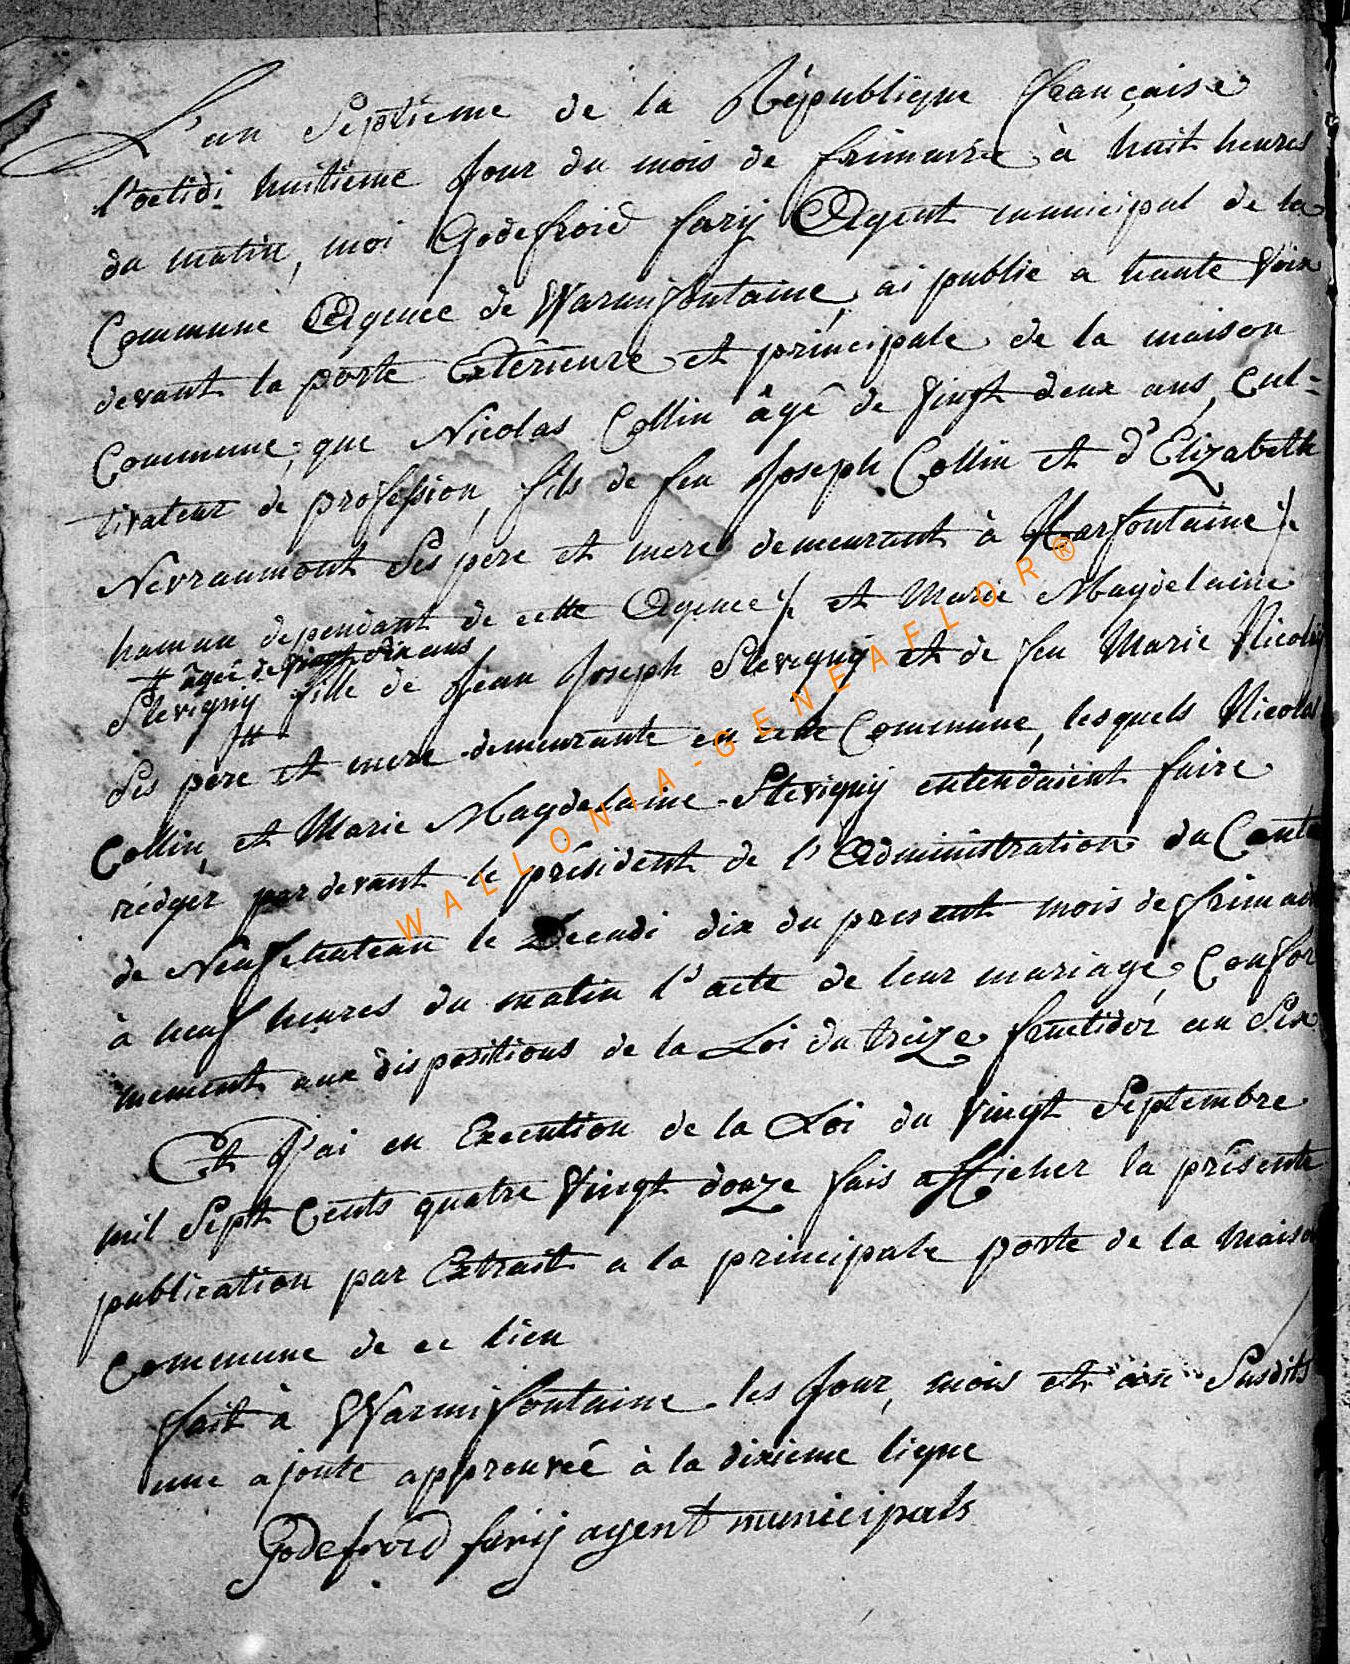 L'an Septieme de la République française
l'octidi huitieme jour du mois de frimaire à huit heures
du matin, moi Godefroid fary Agent municipal de la
Commune Agence de Warmifontaine, ai publié a haute Voix
devant la porte Extérieure et principale de la maison
Commune, que Nicolas Collin âgé de Vingt deux ans, Cul-
tivateur de profession, fils de feu Joseph Collin et d'Elizabeth
Nevraumont Ses pere et mere demeurant à Harfontaine
hamau dependant de cette Agence et Marie Magdelaine
# âgée de Vingt dix ans
Stevigny fille de Jean Joseph Stevigny et de feu Marie Nicolay
Ses pere et mere demeurante en cette Commune, lesquels Nicolas
Collin, et Marie Magdelaine Stevigny entendaient faire
rédger pardevant le président de l'Administration du Canto
de Neufchateau le Decadi dix du present mois de frimair
à neuf heures du matin l'acte de leur mariage, Confor
mement aux dispositions de la Loi du treize fructidor an Six
Et J'ai en Execution de la Loi du Vingt Septembre
mil Sept Cents quatre Vingt douze fais afficher la présente
publication par Extrait a la principale porte de la maiso
Commune de ce lieu
fait à Warmifontaine les Jour, mois et an Susdits
une ajoute approuveé à la dixieme ligne
Godefroid fary agent municipals
WALLONIA-GENEAFLOR®